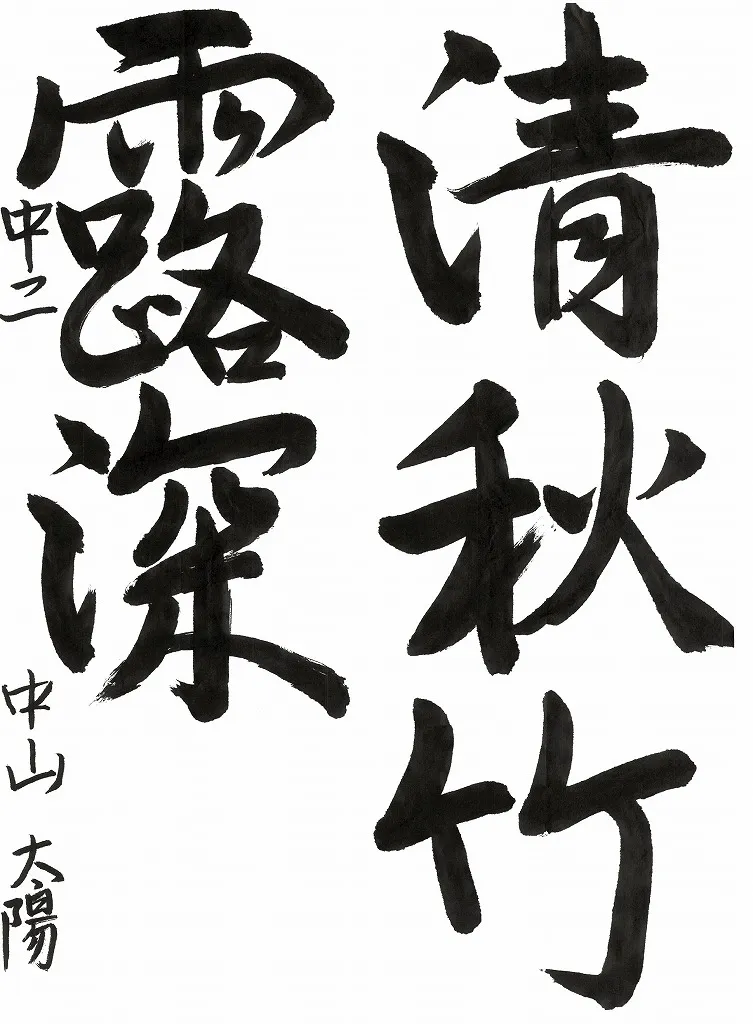 清秋竹
露深
中二 中山 太陽